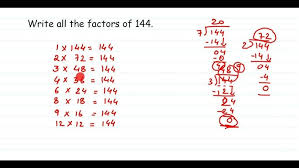 Write all the factors of 144.
1 × 144 = 144
2 × 72 = 144
3 × 48 = 144
4 × 36 = 144
6 × 24 = 144
8 × 18 = 144
9 × 16 = 144
12 × 12 = 144
20
7 144
-14↓
04
-0
3 144
-12↓
24
-24
0
72
2 144
-14↓
04
-4
0